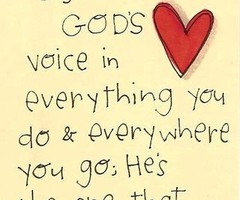 GOD'S
voice in
everything you
do & everywhere
you go; He's
the one that